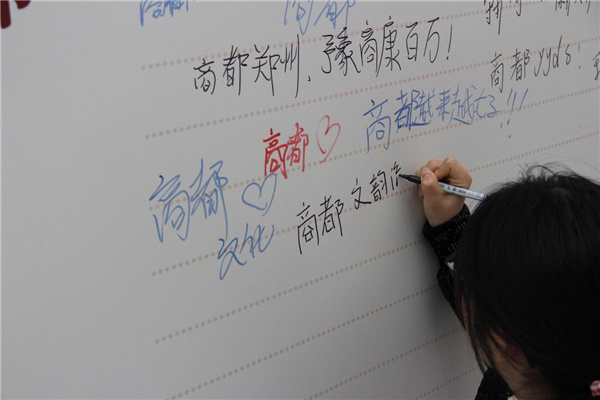 商都
商都郑州，豫商康百万！
商都yyds！
商都越来越好！！！
商都♡
商都♡
文化
商都文韵流